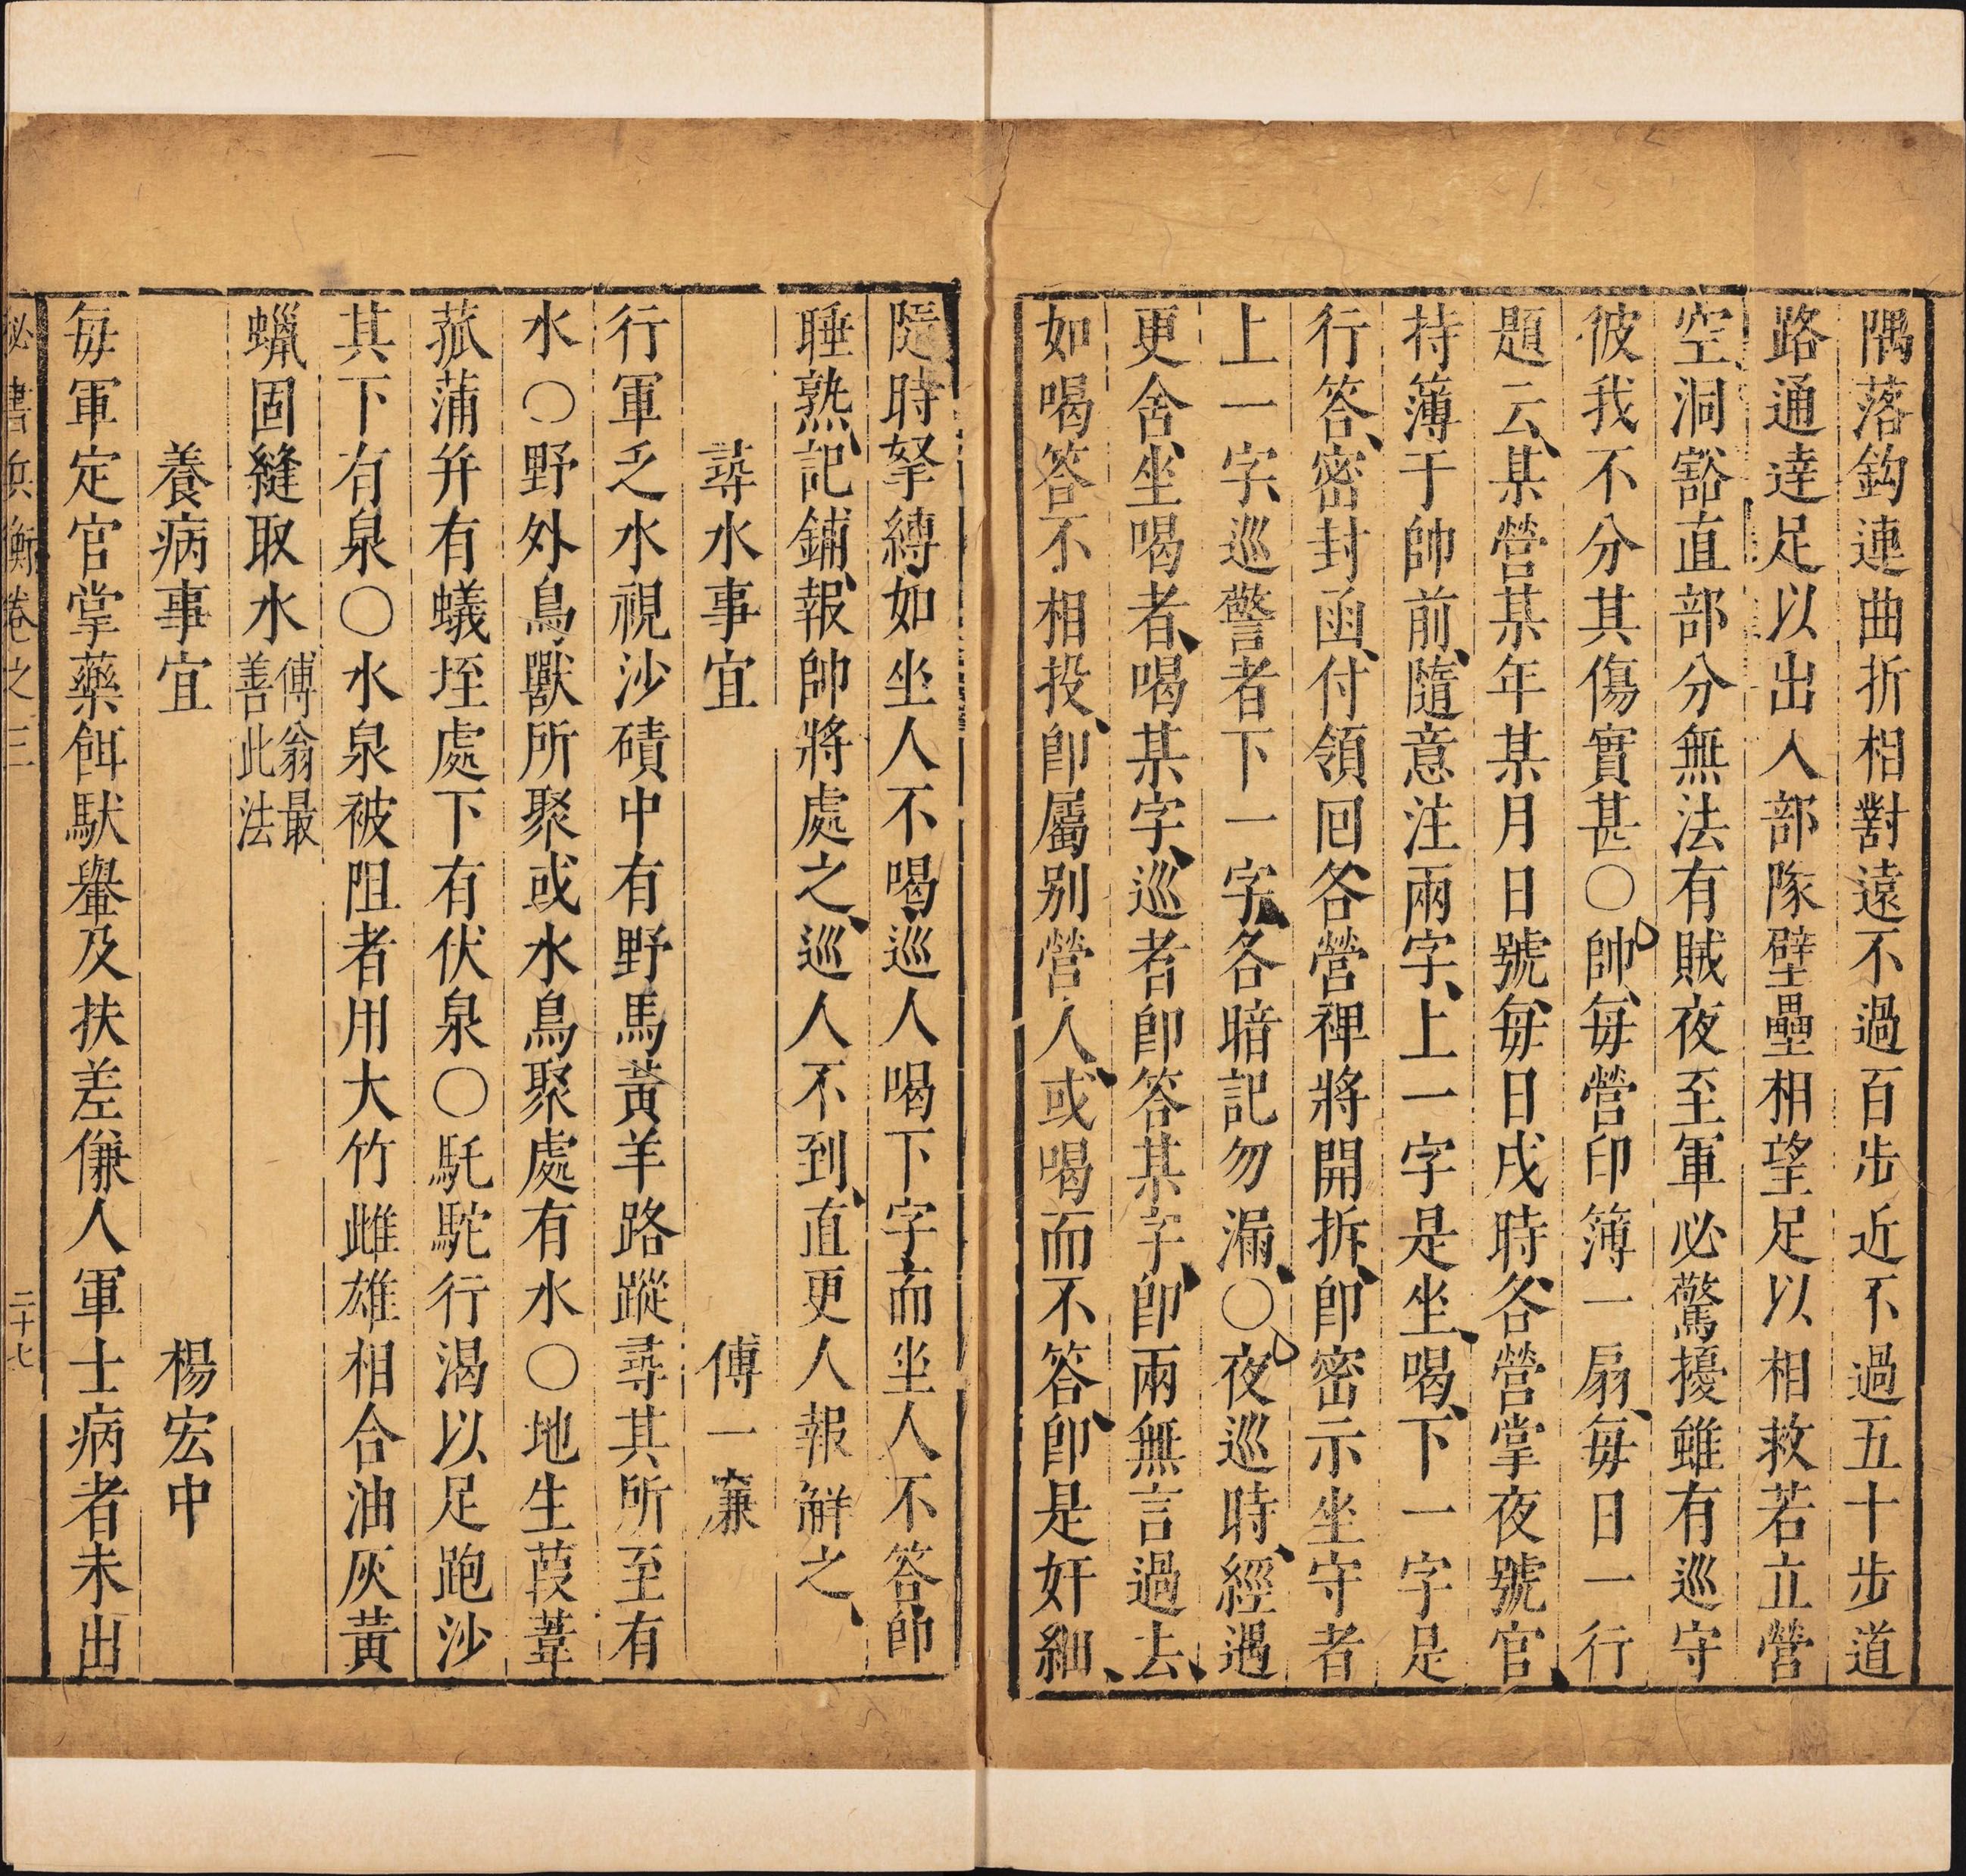 隅落鈎連曲折相對遠不過百步近不過五十步道
路通達足以出入部隊壁壘相望足以相救若立營
空洞豁直部分無法有賊夜至軍必驚擾雖有巡守
彼我不分其傷實甚〇帥每營印簿一扇每日一行
題云某營某年某月日號每日戌時各營掌夜號官
持簿于帥前隨意注兩字上一字是坐喝下一字是
行答密封函付領回各營裨將開拆卽密示坐守者
上一字巡警者下一字各暗記勿漏〇夜巡時經過
更舍坐喝者喝某字巡者卽答某字卽兩無言過去
如喝答不相投卽屬别營人或喝而不答卽是奸細
隨時拏縛如坐人不喝巡人喝下字而坐人不答卽
睡熟記鋪報帥將處之巡人不到直更人報觧之
尋水事宜 傅一廉
行軍乏水視沙磧中有野馬黃羊路蹤尋其所至有
水〇野外鳥獸所聚或水鳥聚處有水〇地生葭葦
菰蒲并有蟻垤處下有伏泉〇駞駝行渴以足跑沙
其下有泉〇水泉被阻者用大竹雌雄相合油灰黃
蠟固縫取水傅翁最善此法
養病事宜 楊宏中
每軍定官掌藥餌馱轝及扶差傔人軍士病者未出
祕書兵衡卷之三 二十七